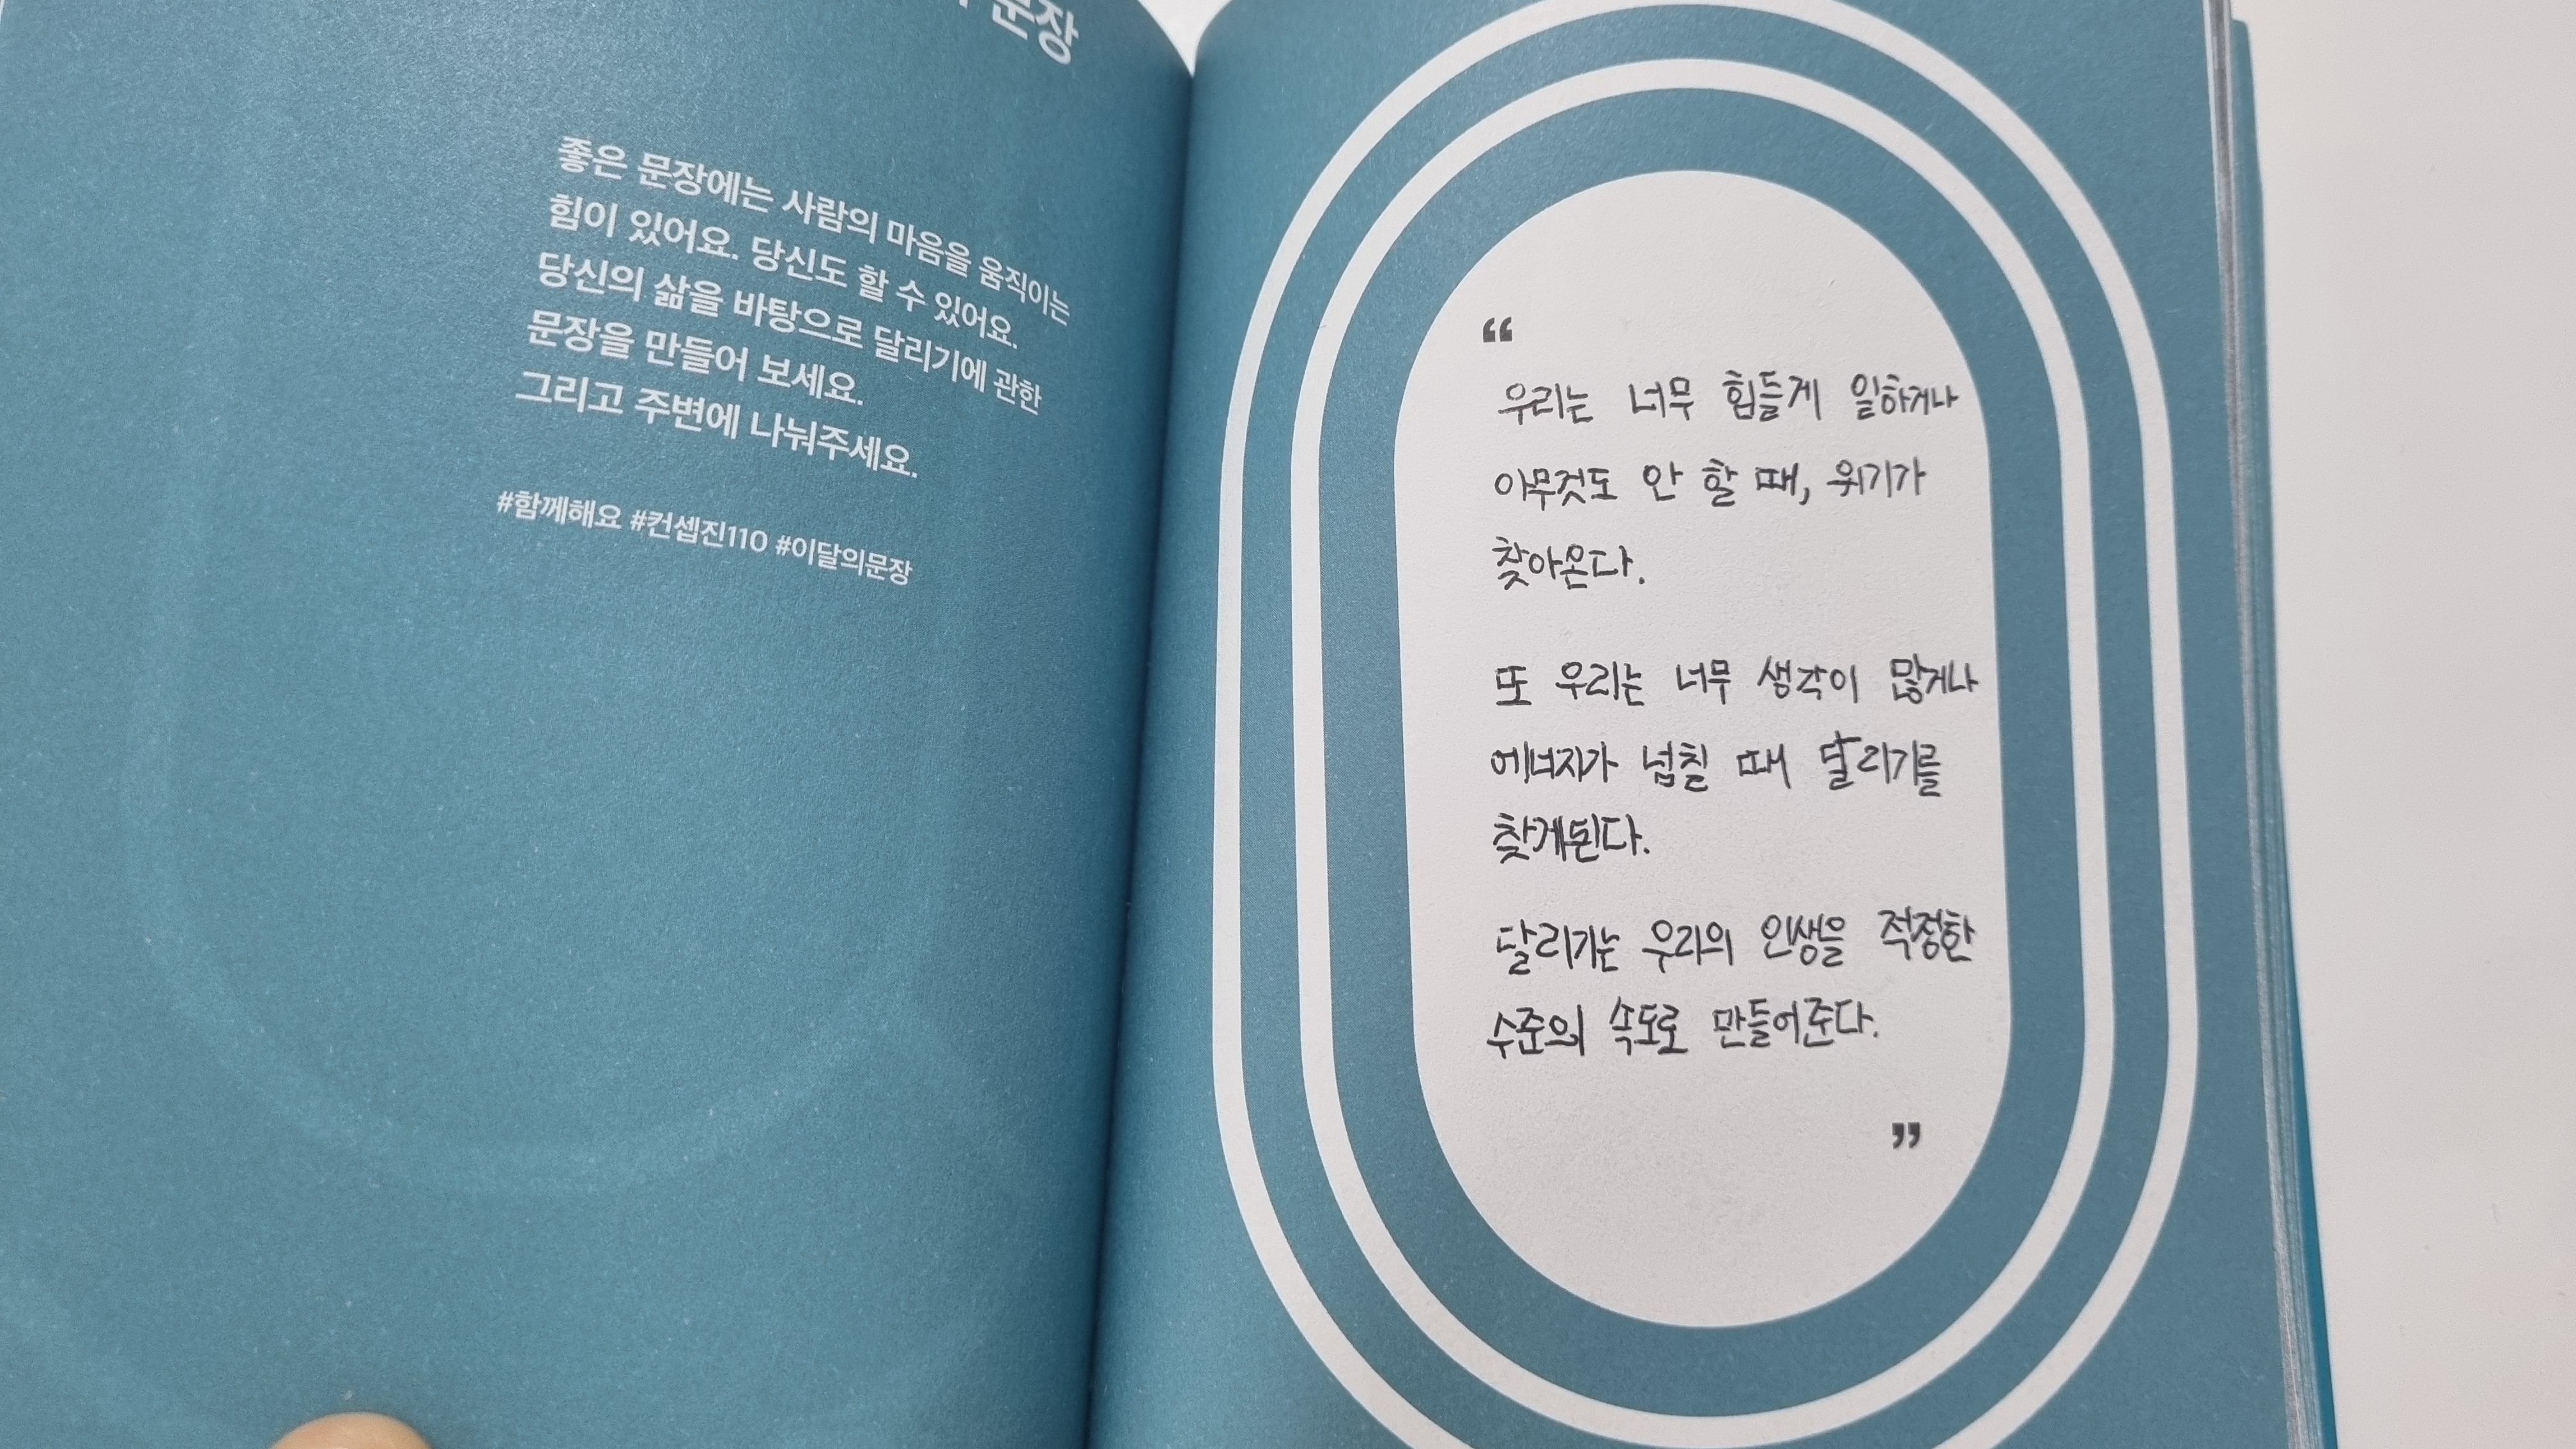 문장
좋은 문장에는 사람의 마음을 움직이는
힘이 있어요. 당신도 할 수 있어요.
당신의 삶을 바탕으로 달리기에 관한
문장을 만들어 보세요.
그리고 주변에 나눠주세요.
#함께해요 #컨셉진110 #이달의문장
“
우리는 너무 힘들게 일하거나
아무것도 안 할 때, 위기가
찾아온다.
또 우리는 너무 생각이 많거나
에너지가 넘칠 때 달리기를
찾게된다.
달리기는 우리의 인생을 적정한
수준의 속도로 만들어준다.
”